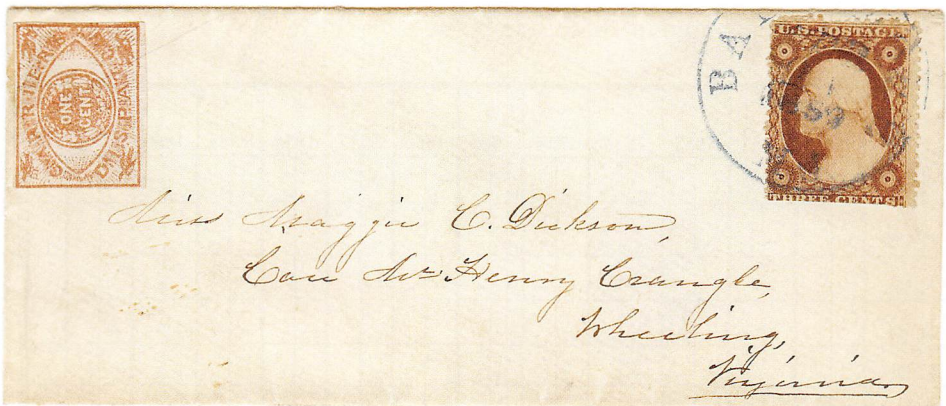 ONE
CENT
BA
59
U.S. POSTAGE
THREE CENTS
Miss Maggie C. Dickson,
Care Mr. Henry Crangle,
Wheeling,
Virginia